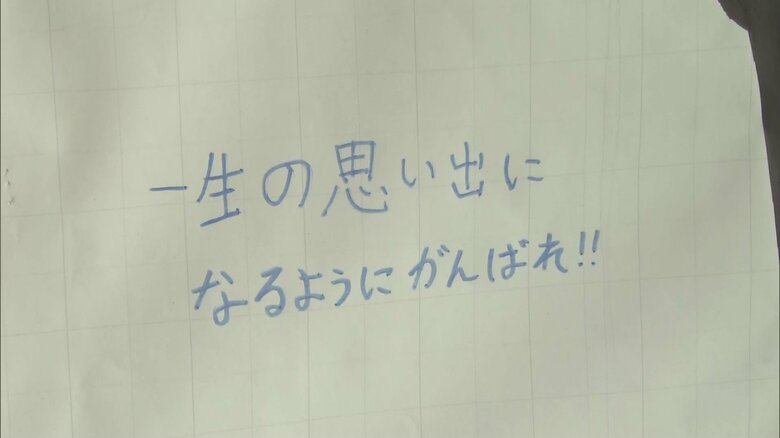 一生の思い出に
なるようにがんばれ!!